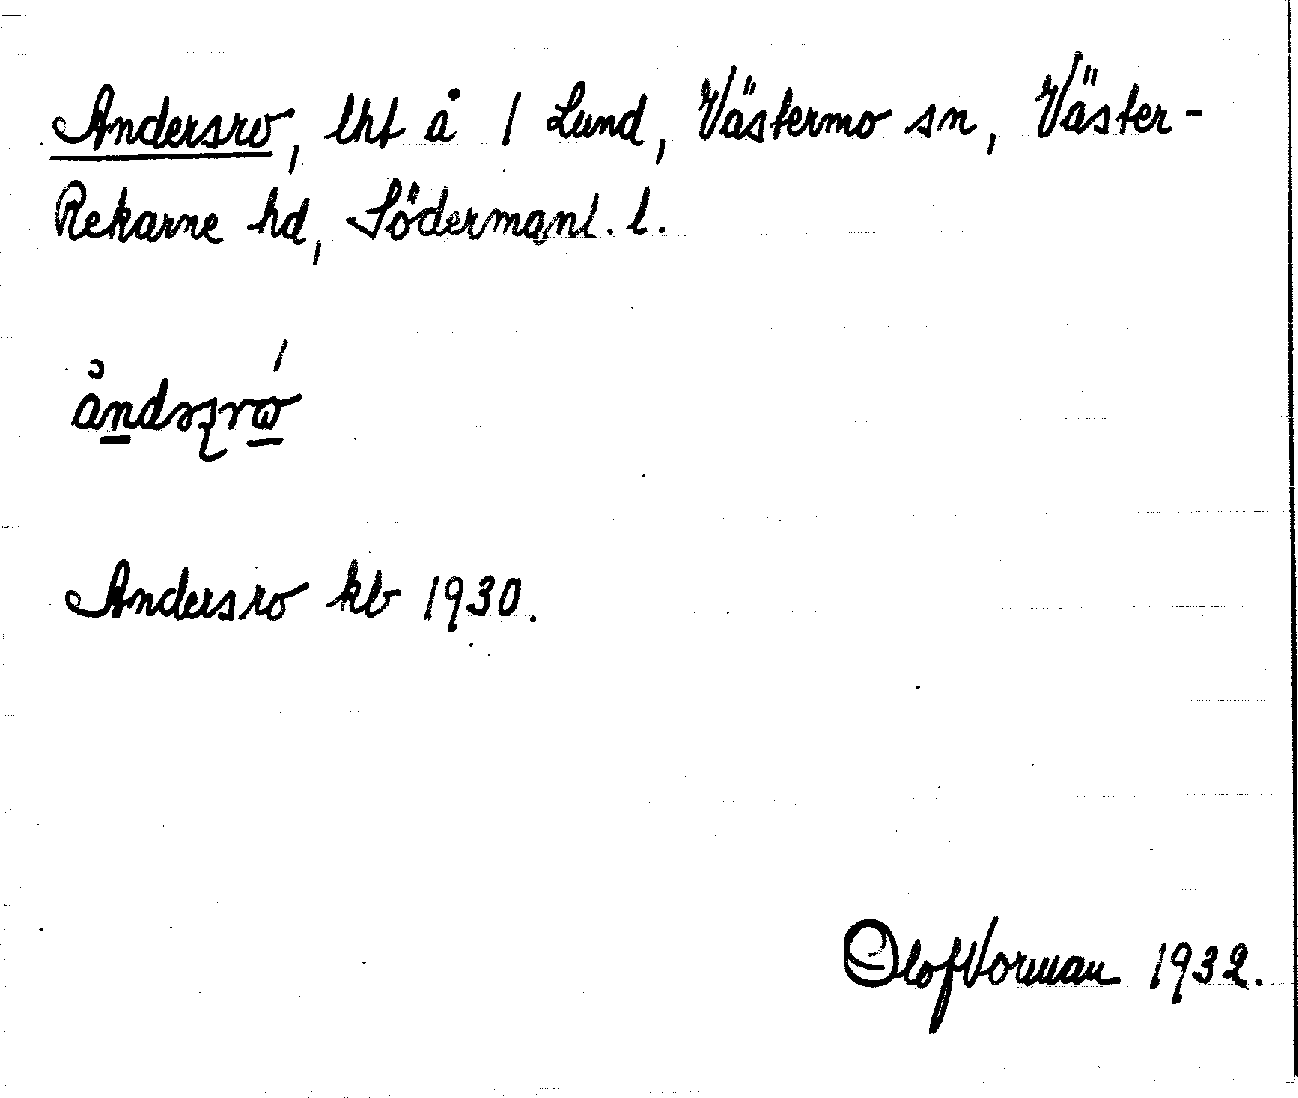 Andersro, lht å 1 Lund, Västermo sn, Väster-
Rekarne hd, Södermanl. l.
Andersro kb 1930.
Olof Vorman 1932.